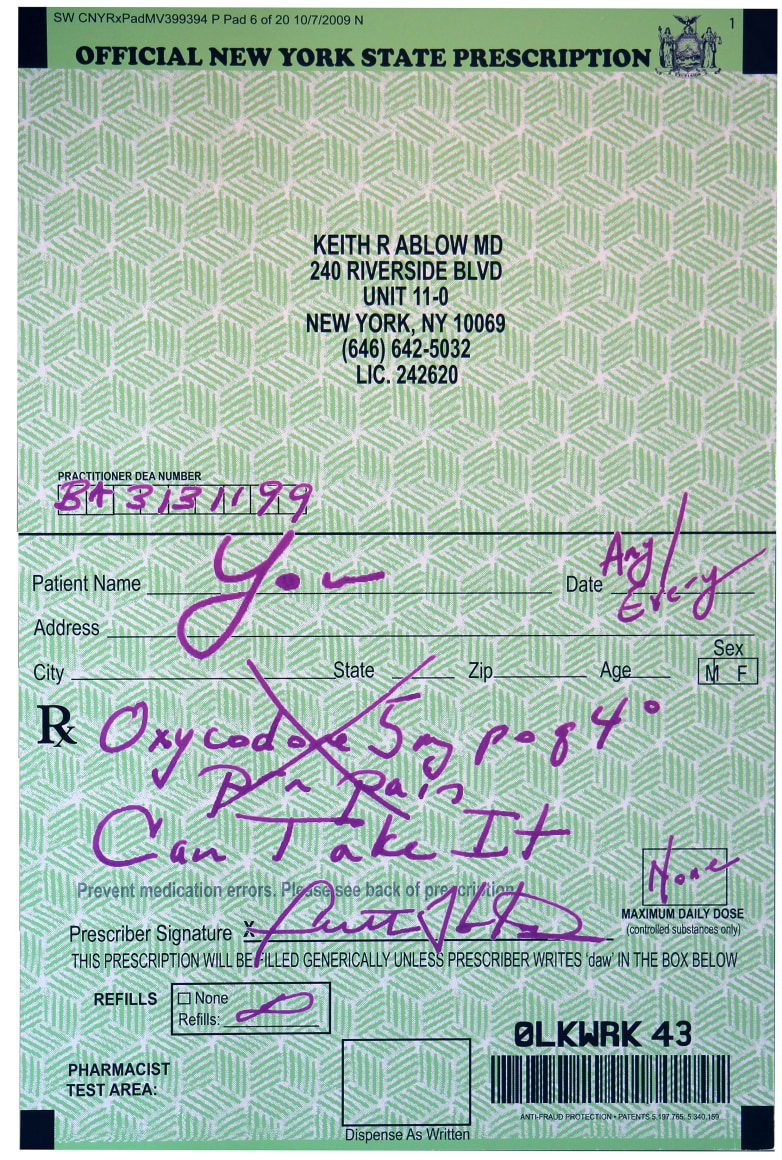 SW CNYRxPadMV399394 P Pad 6 of 20 10/7/2009 N
1
OFFICIAL NEW YORK STATE PRESCRIPTION
KEITH R ABLOW MD
240 RIVERSIDE BLVD
UNIT 11-0
NEW YORK, NY 10069
(646) 642-5032
LIC. 242620
PRACTITIONER DEA NUMBER
BA3131199
Patient Name You Date Any/
Every
Address
Sex
City State Zip Age M F
Rx Oxycodone 5mg po q 4°
Prn pain
Can Take It
None
Prevent medication errors. Please see back of prescription
MAXIMUM DAILY DOSE
Prescriber Signature X
(controlled substances only)
THIS PRESCRIPTION WILL BE FILLED GENERICALLY UNLESS PRESCRIBER WRITES 'daw' IN THE BOX BELOW
REFILLS
None
Refills:
0LKWRK 43
PHARMACIST
TEST AREA:
ANTI-FRAUD PROTECTION • PATENTS 5,197,765; 5,340,159
Dispense As Written